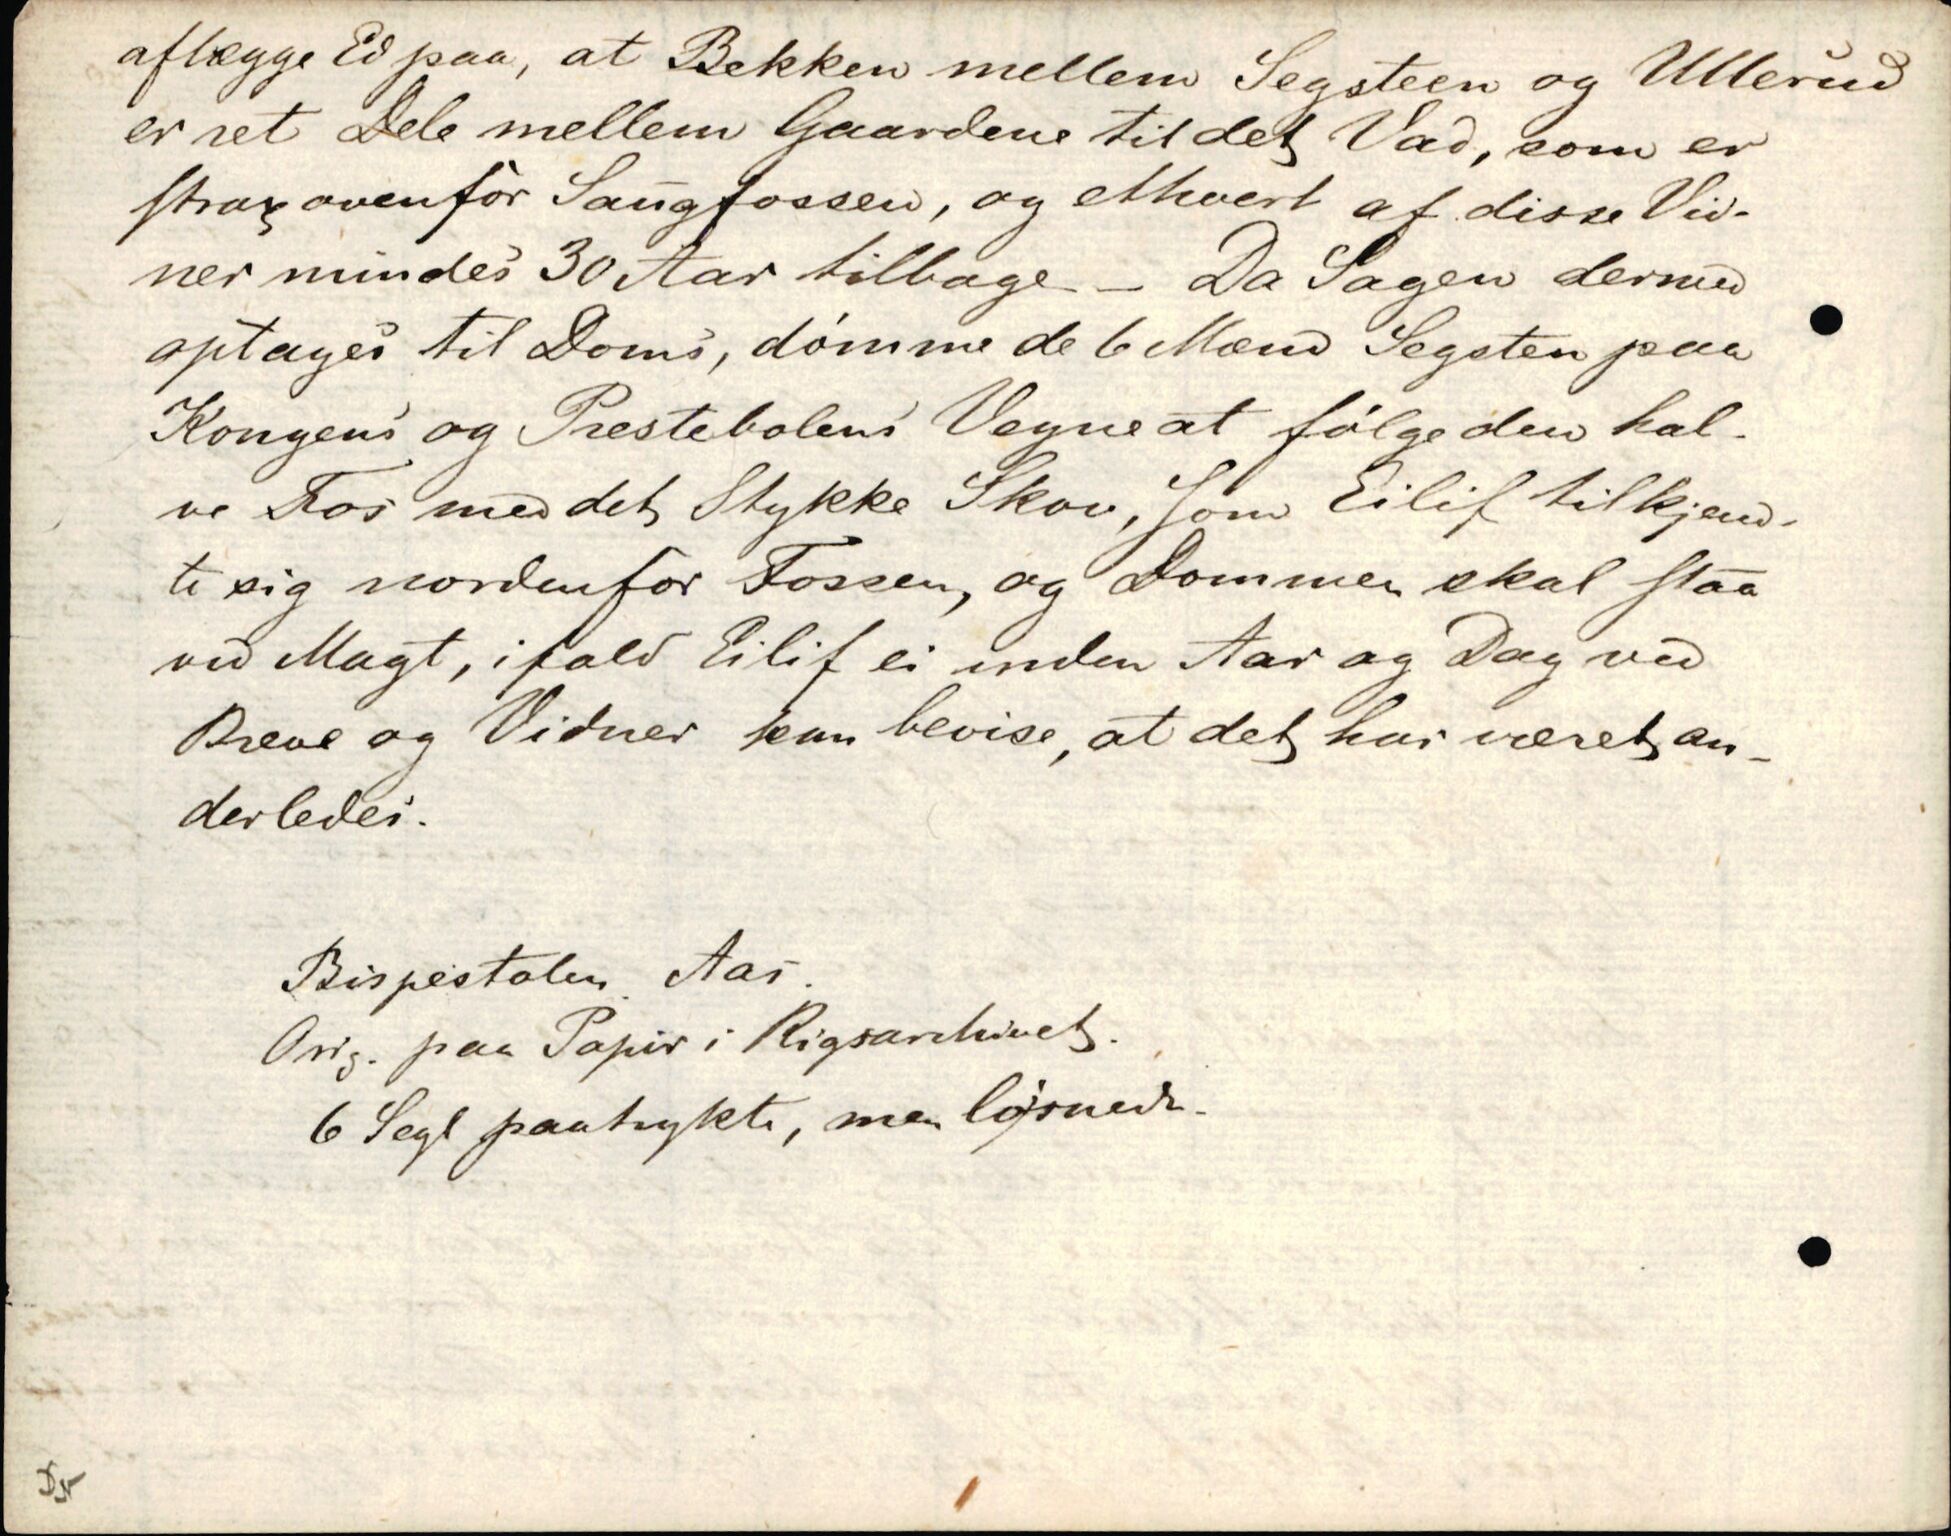 aflægge Ed paa, at Bekken mellem Segsteen og Ullerud
er ret Dele mellem Gaardene til det Vad, som er
strax ovenfor Saugfossen, og ethvert af disse Vid-
ner mindes 30 Aar tilbage – Da Sagen dermed
optages til Doms, dömme de 6 Mænd Segsten paa
Kongens og Prestebolens Vegne at fölge den hal-
ve Fos med det Stykke Skov, som Eilif tilkjend-
te sig nordenfor Fossen, og Dommen skal staa
ved Magt, ifald Eilif ei inden Aar og Dag ved
Breve og Vidner kan bevise, at det har været an-
derledes.
Bispestolen Aas.
Orig. paa Papir i Rigsarchivet.
6 Segl paatrykte, men løsnede.
DN